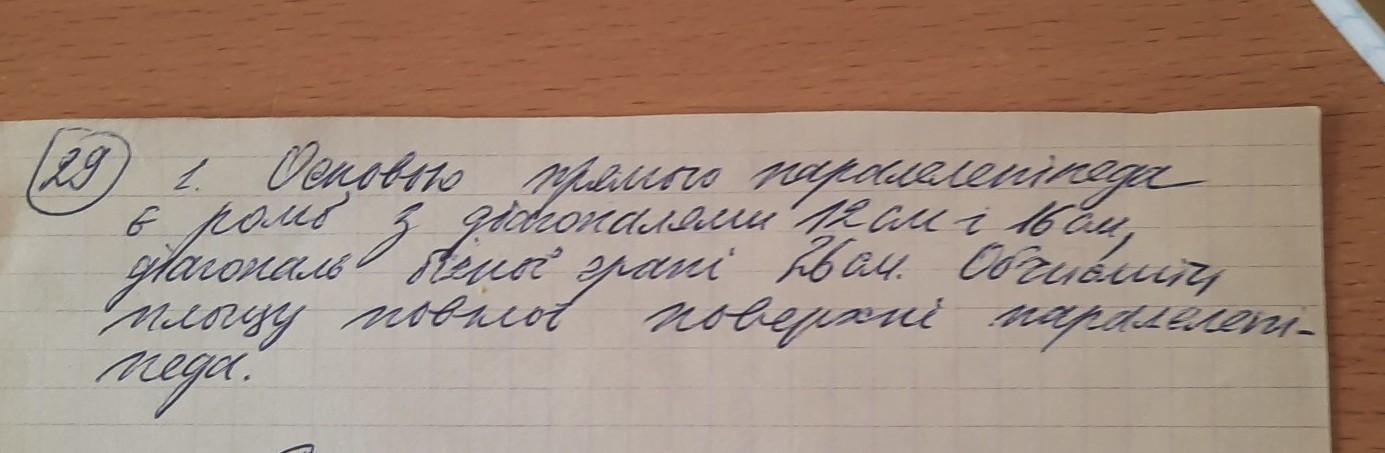 29 1. Основою прямого паралелепіпеда
є ромб з діагоналями 12 см і 16 см,
діагональ бічної грані 26 см. Обчислити
площу повної поверхні паралелепі-
педа.